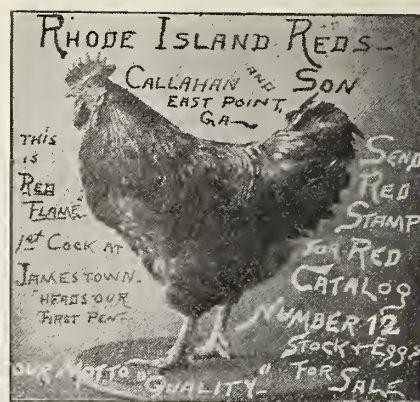 RHODE ISLAND REDS-
CALLAHAN AND SON
EAST POINT,
GA-
THIS
IS
RED
FLAME
1st COCK AT
JAMESTOWN.
HEADS OUR
FIRST PEN-
SEND
RED
STAMP
FOR RED
CATALOG
NUMBER 12
STOCK + EGGS
FOR
SALE
OUR MOTTO "QUALITY-"